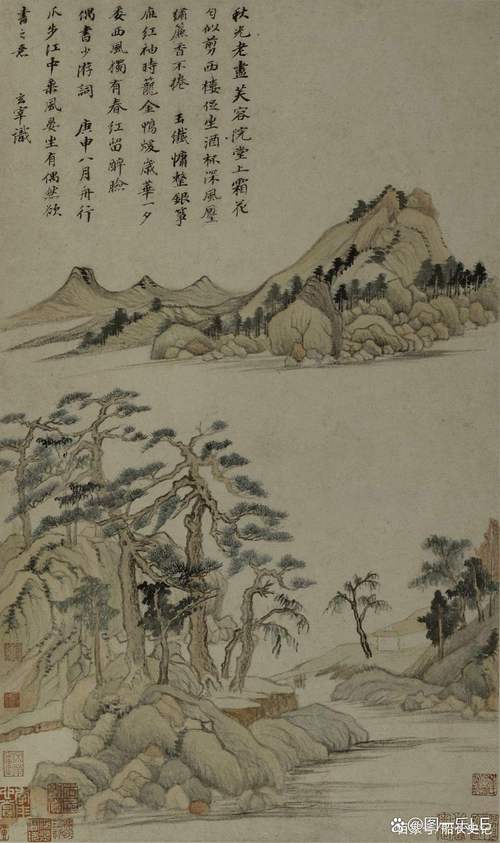 秋光老盡芙容院堂上霜花
勻似剪西樓促坐酒杯深風壓
繡簾香不捲 玉纖慵整銀箏
雁紅袖時籠金鴨煖歲華一夕
委西風獨有春紅留醉臉
偶書少游詞 庚申八月舟行
瓜步江中乘風晏坐有偶然欲
書之意 玄宰識
@图一乐LE